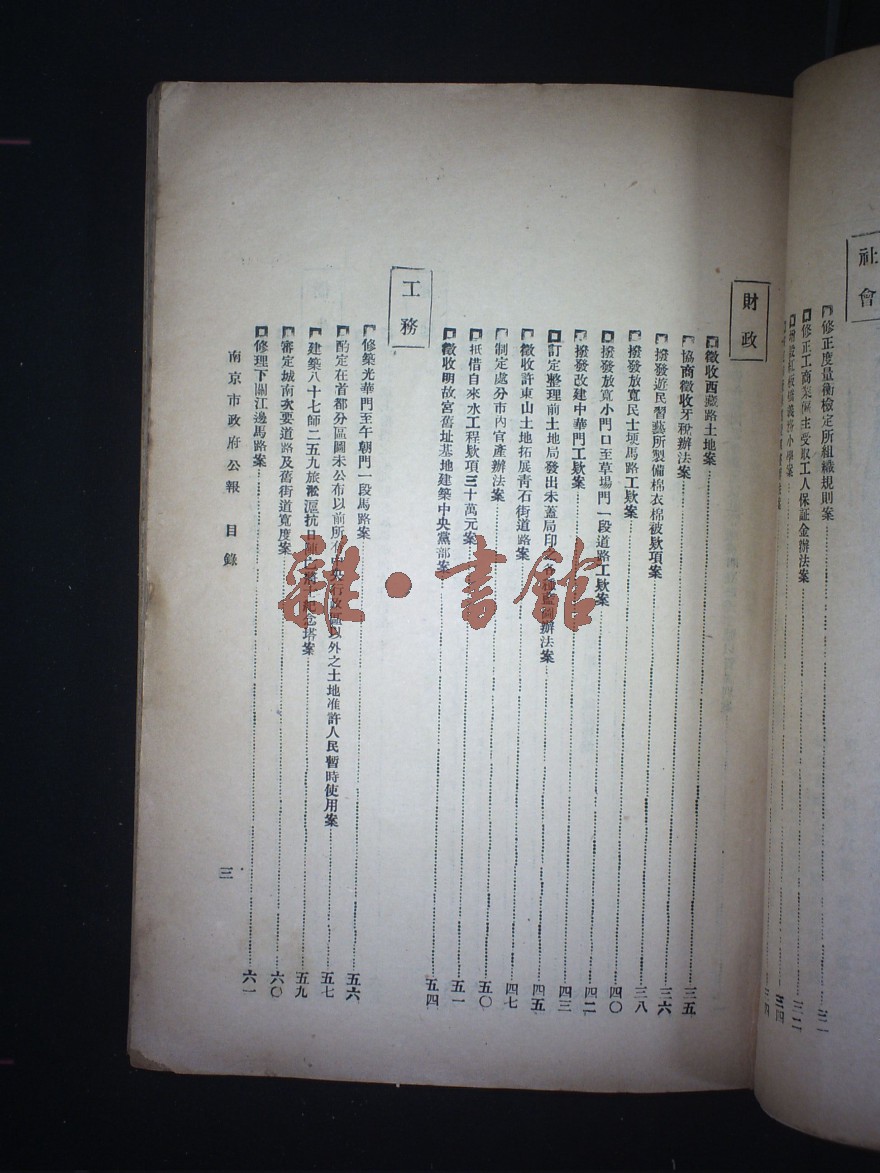 社會
修正度量衡檢定所組織規則案
修正工商業僱主受取工人保証金辦法案 三二
增設紅板橋義務小學案 三四
財政
徵收西藏路土地案 三五
協商徵收牙稅辦法案 三六
撥發遊民習藝所製備棉衣棉被欵項案 三八
撥發放寬民士埂馬路工欵案 四〇
撥發放寬小門口至草場門一段道路工欵案 四二
撥發改建中華門工欵案 四三
訂定整理前土地局發出未蓋局印之各種 辦法案 四五
徵收許東山土地拓展青石街道路案 四七
制定處分市內官產辦法案 五〇
抵借自來水工程欵項三十萬元案 五一
徵收明故宮舊址基地建築中央黨部案 五四
工務
修築光華門至午朝門一段馬路案 五六
酌定在首都分區圖未公布以前所有中央行政區以外之土地准許人民暫時使用案 五七
建築八十七師二五九旅淞滬抗日陣亡將士紀念塔案 五九
審定城南次要道路及舊街道寬度案 六〇
修理下關江邊馬路案 六一
南京市政府公報 目錄
三
雜·書館